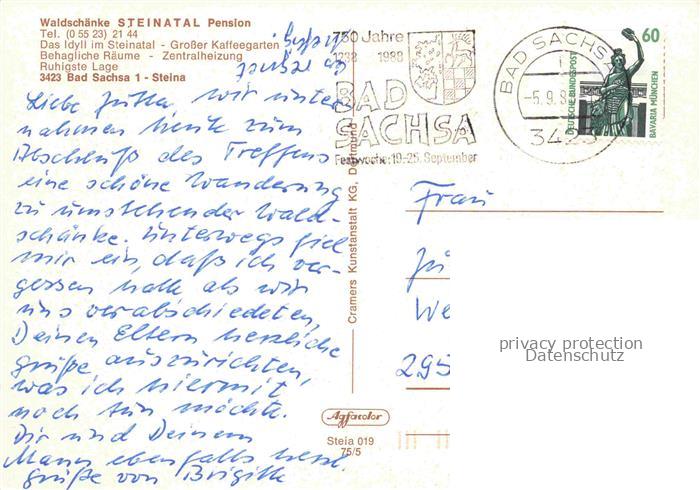 Waldschänke STEINATAL Pension
Tel. (0 55 23) 21 44
Das Idyll im Steinatal - Großer Kaffeegarten
Behagliche Räume - Zentralheizung
Ruhigste Lage
3423 Bad Sachsa 1 - Steina
Liebe Jutta, wir unter-
nahmen heute zum
Abschluß des Treffens
eine schöne Wanderung
zu umstehender Wald-
schänke. Unterwegs fiel
mir ein, daß ich ver-
gessen hatte als wir
uns verabschiedeten,
Deinen Eltern herzliche
Grüße auszurichten,
was ich hiermit
noch tun möchte.
Dir und Deinem
Mann ebenfalls herzl.
Grüße von Brigitte
750 Jahre
1238 1988
BAD
SACHSA
Festwoche: 19.-25. September
BAD SACHSA
-5.9.8
3423
60
DEUTSCHE BUNDESPOST
BAVARIA MÜNCHEN
Cramers Kunstanstalt KG, Dortmund
Frau
Ju
We
295
privacy protection
Datenschutz
Agfacolor
Steia 019
75/5